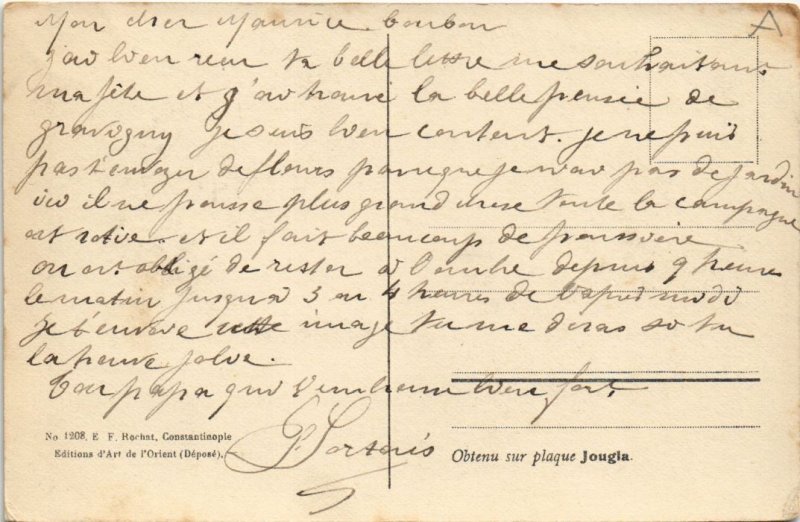 Mon cher Maurice bonbon
j'ai bien recu ta belle lettre me souhaitant
ma fête et j'ai trouvé la belle pensée de
gravigny je suis bien content. je ne puis
pas t'envoyer de fleurs parceque je n'ai pas de jardin
ici il ne pousse plus grand chose toute la campagne
est rotie. et il fait beaucoup de poussière
on est obligé de rester à l'ombre depuis 9 heures
le matin jusqu'à 3 ou 4 heures de l'après midi
je t'envoie cette image tu me diras si tu
la trouve jolie.
Ton papa qui t'embrasse bien fort
No 1208, E. F. Rochat, Constantinople
Editions d'Art de l'Orient (Déposé).
Obtenu sur plaque Jougla.
A